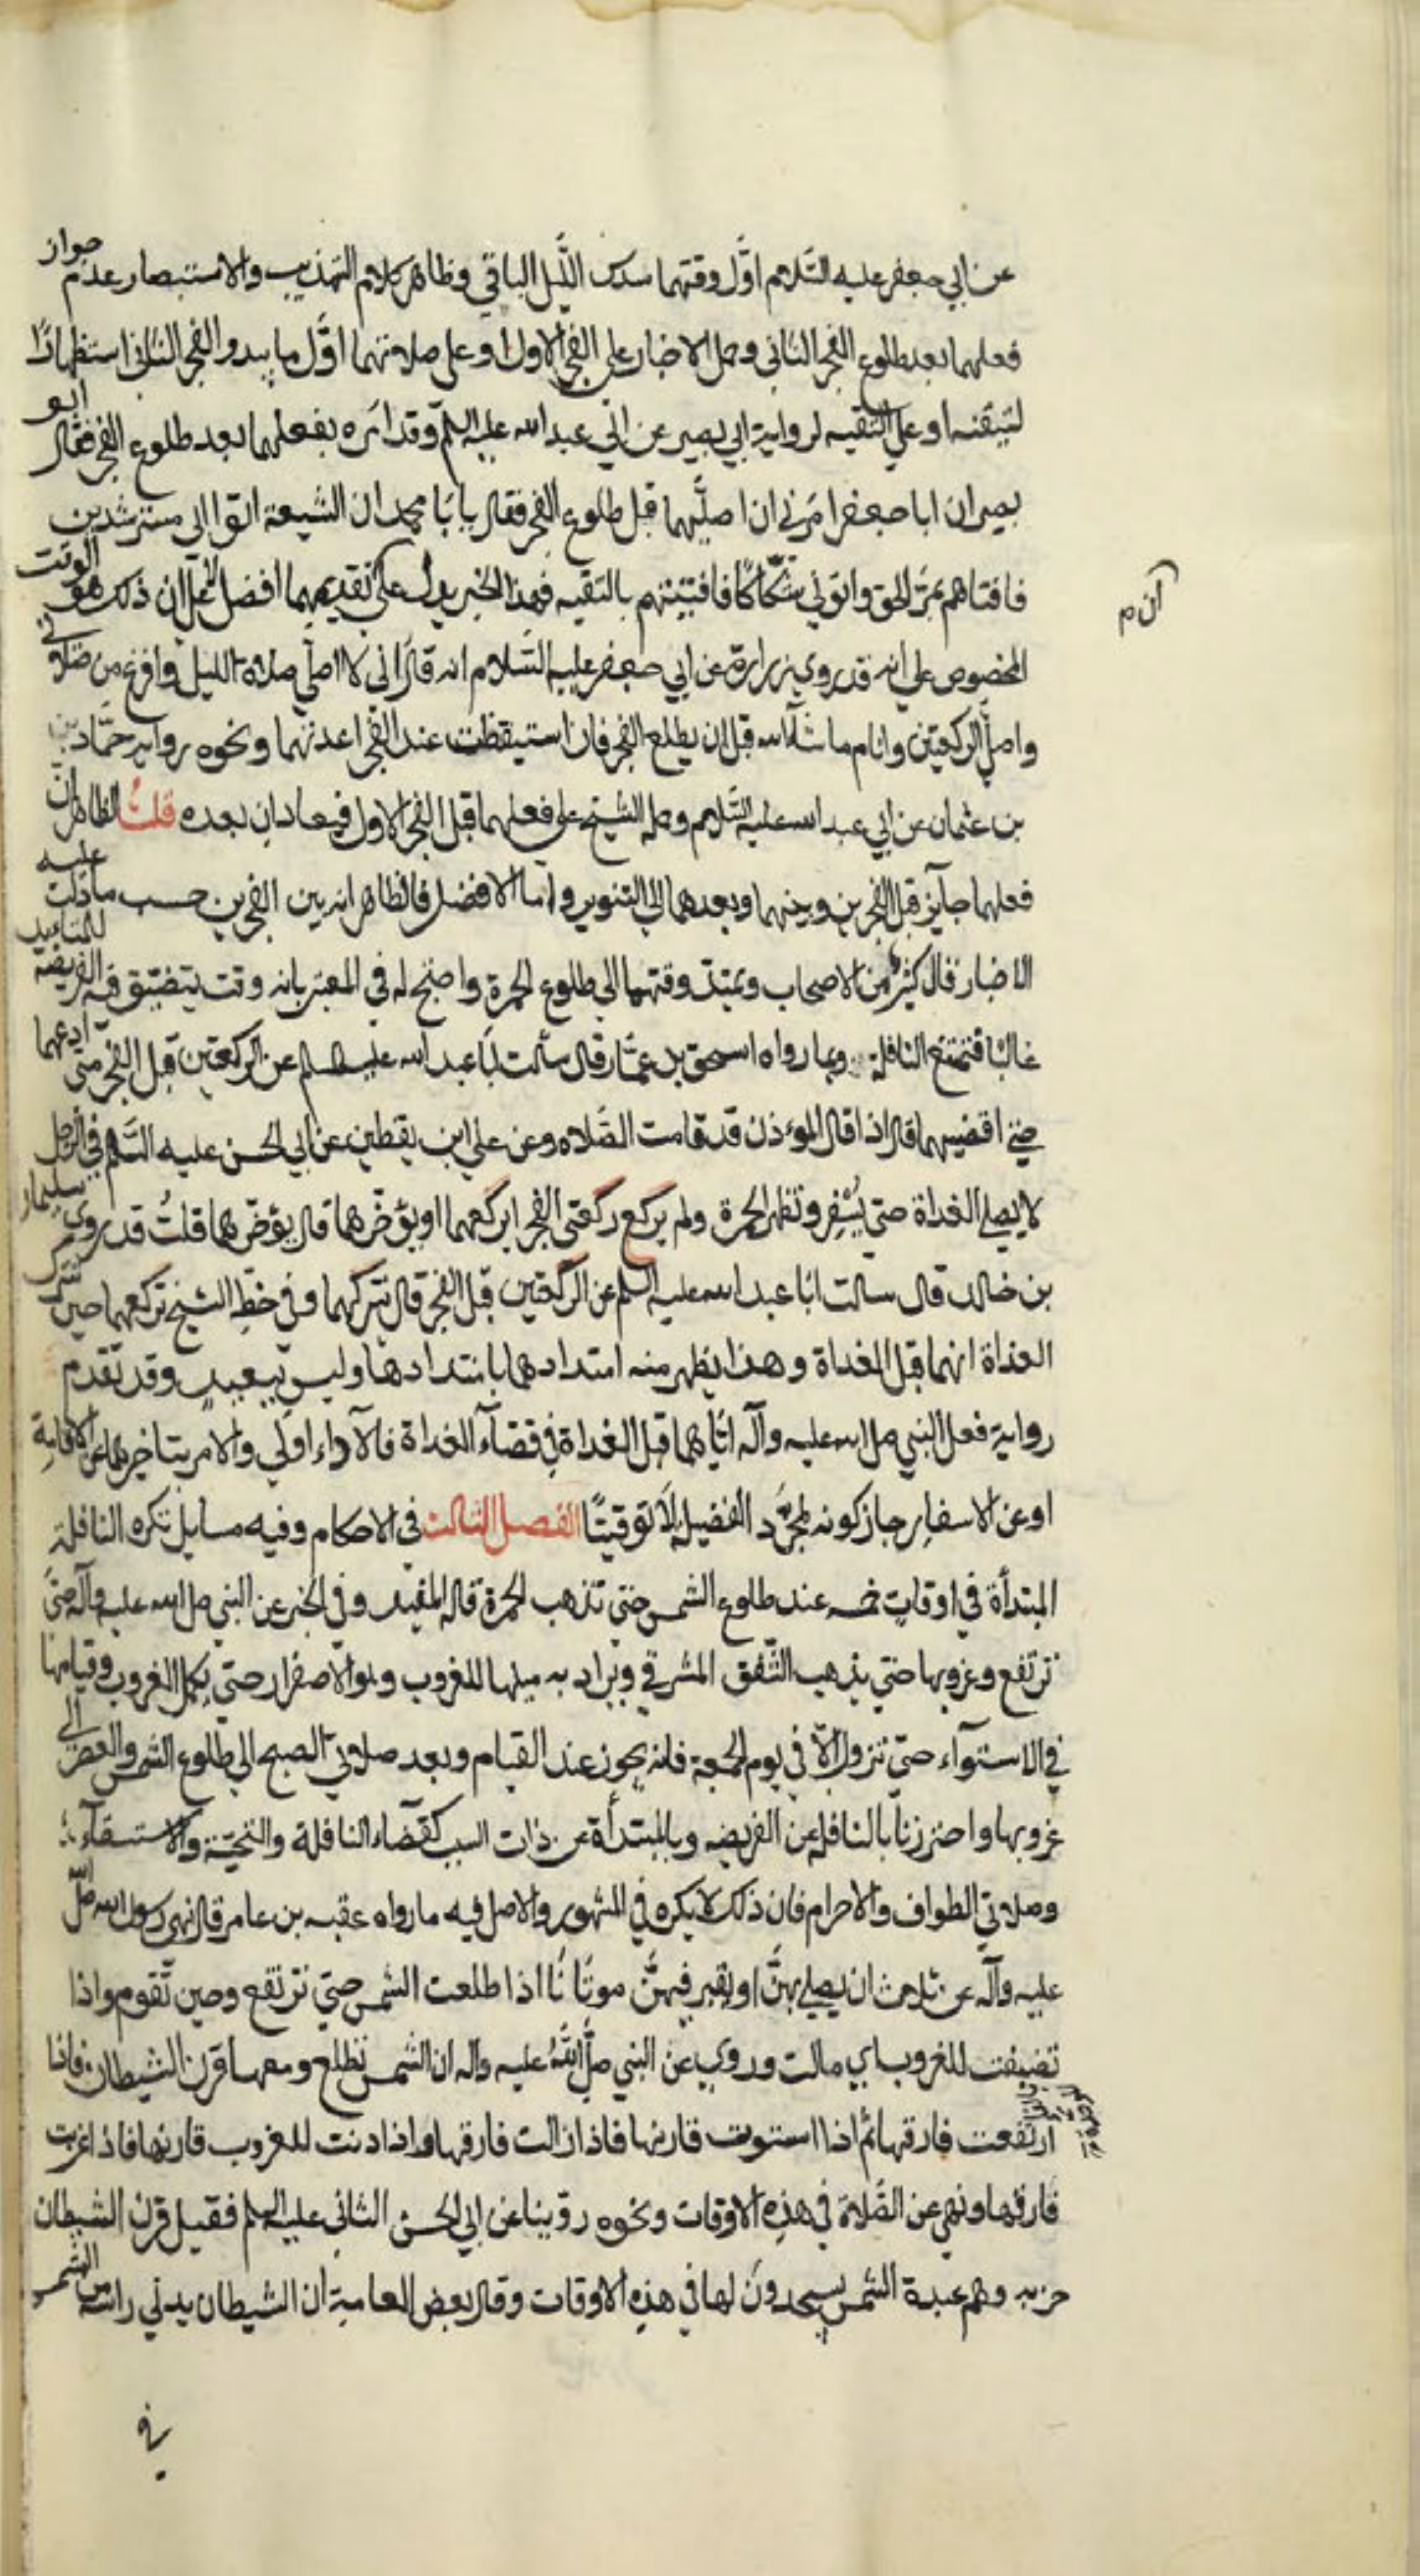 عن ابي جعفر عليه السّلام اوّل وقتهما سدس اللّيل الباقي وظاهر كلام التهذيب والاستبصار عدم جواز
فعلهما بعد طلوع الفجر الثاني وحمل الاخبار على الفجر الاول او على صلاتهما اوّل ما يبدو الفجر الثاني استظهارًا
لتيقنه او على التقيه لرواية ابي بصير عن ابي عبد الله عليه السلم وقد امَره بفعلهما بعد طلوع الفجر فقال ابو
بصير ان ابا جعفر امَرني ان اصليّهما قبل طلوع الفجر فقال يا بَا محمد ان الشيعة اتوا ابي مسترشدين
فافتاهم بمرّ الحق واتوني شكّاكًا فافتيتهم بالتقيه فهذا الخبر يدل على تقديمهما افضل لعل ان ذلك هو الوقت
المخصوص على انه قد روى زرارة عن ابي جعفر عليه السّلام انه قال اني لا اصلّي صلاة الليل وافرغ من صلاتي
واصلّي الركعتين وانام ما شآ الله قبل ان يطلع الفجر فان استيقظت عند الفجر اعدتهما ونحوه رواية حمّاد بن
بن عثمان عن ابي عبد الله عليه السّلام وحمله الشيخ على فعلهما قبل الفجر الاول فيعادان بعده قلتُ الظاهر ان
فعلهما جآيز قبل الفجرين وبينهما وبعدهما الى التنوير واما الافضل فالظاهر انه بين الفجرين حسب ما دلت عليه
الاخبار قال كثير من الاصحاب ويمتدّ وقتهما الى طلوع الحمرة واحتج له في المعتبر بانه وقت يتضيّق فيه الفريضه للمتاهب
غالبًا فتمتنع النافلة وبما رواه اسحق بن عمّار قال سألت ابَا عبد الله عليه السلم عن الركعتين قبل الفجر متى ادعهما
حتى اقضيهما قال اذا قال المؤذن قد قامت الصّلاه وعن علي ابن يقطين عن ابي الحسن عليه السّلم في الرجل
لا يصلي الغداة حتى يُسْفِر وتظهر الحمرة ولم يركع ركعتي الفجر ايركعهما او يؤخّرهما قال يؤخّرهما قلتُ قد روى سليمان
بن خالد قال سالت ابَا عبد الله عليه السلم عن الركعتين قبل الفجر قال تتركهما وفي خطِّ الشيخ تركعهما حين تترك
الغداة انهما قبل الغداة وهذا يظهر منه امتدادهما بامتدادها وليس ببعيد وقد تقدم
رواية فعل النبي صل الله عليه وآله ايّاهما قبل الغداة في قضآء الغداة فالآداء اولي والامر بتاخيرهما عن الاقامة
او عن الاسفارِ جاز كونه لمجرّد الفضيلة لا توقيتًا الفصل الثالث في الاحكام وفيه مسايل تكره النافلة
المبتدأة في اوقاتٍ خمسه عند طلوع الشمس حتى تذهب الحمرة قاله المفيد وفي الخبر عن النبي صل الله عليه وآله حتّى
ترتفع وغروبها حتي يذهب الشّفق المشرقي ويراد به ميلها للغروب وهو الاصفرار حتى يكمل الغروب وقيامها
في الاستوآء حتى تزول الّا في يوم الجمعة فانه يجوز عند القيام وبعد صلاتي الصبح الى طلوع الشمس والعصر الى
غروبها واحترزنا بالنافلة عن الفريضه وبالمبتدأة عن ذات السبب كقضاء النافلة والتحيّة والاستسقآء
وصلاتي الطواف والاحرام فان ذلك لا يكره في المشهور والاصل فيه ما رواه عقبه بن عامر قال نهى رسول الله صلّى الله
عليه وآله عن ثلاث ان يصلي بهنّ او نقبر فيهنّ موتَانَا اذا طلعت الشمس حتى ترتفع وحين تقوم واذا
تضيفت للغروب اي مالت وروي عن النبي صلّى اللهُ عليه واله ان الشمس تطلع ومعها قرن الشيطان فاذا
ارتفعت فارقها ثم اذا استوت قارنها فاذا زالت فارقها واذا دنت للغروب قارنها فاذا غربت
فارقها ونهى عن الصَّلاة في هذِه الاوقات ونحوه روّينا عن ابي الحسن الثاني عليه السلم فقيل قرن الشيطان
حزبه وهم عبدة الشمس يسجدون لها في هذه الاوقات وقال بعض العامة ان الشيطان يدني راسه من الشمس
في